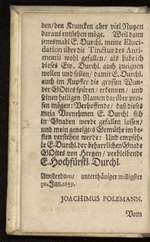 den / den Krancken aber viel Nutzen
darauß entstehen möge. Weil dann
jenesmahl E. Durchl. meine Eluci-
dation über die Tinctur des Anti-
monii wohl gefallen / als hab ich
dieses Ew. Durchl. auch zueignen
wollen und sollen / damit E. Durchl.
auch im Kupffer die grossen Wun-
der GOttes spüren / erkennen / und
seinen heiligen Namen darüber prei-
sen mögen: Verhoffende / daß dieses
mein Vornehmen E. Durchl. sich
in Gnaden werde gefallen lassen /
und mein geneigtes Gemüthe im be-
sten verstehen werde: Und empfeh-
le E. Durchl. der beharrlichen Gnade
GOttes von Hertzen / verbleibende
E. Hochfürstl. Durchl.
Amsterdam / unterthäniger williger
JOACHIMUS POLEMANN.
Vom